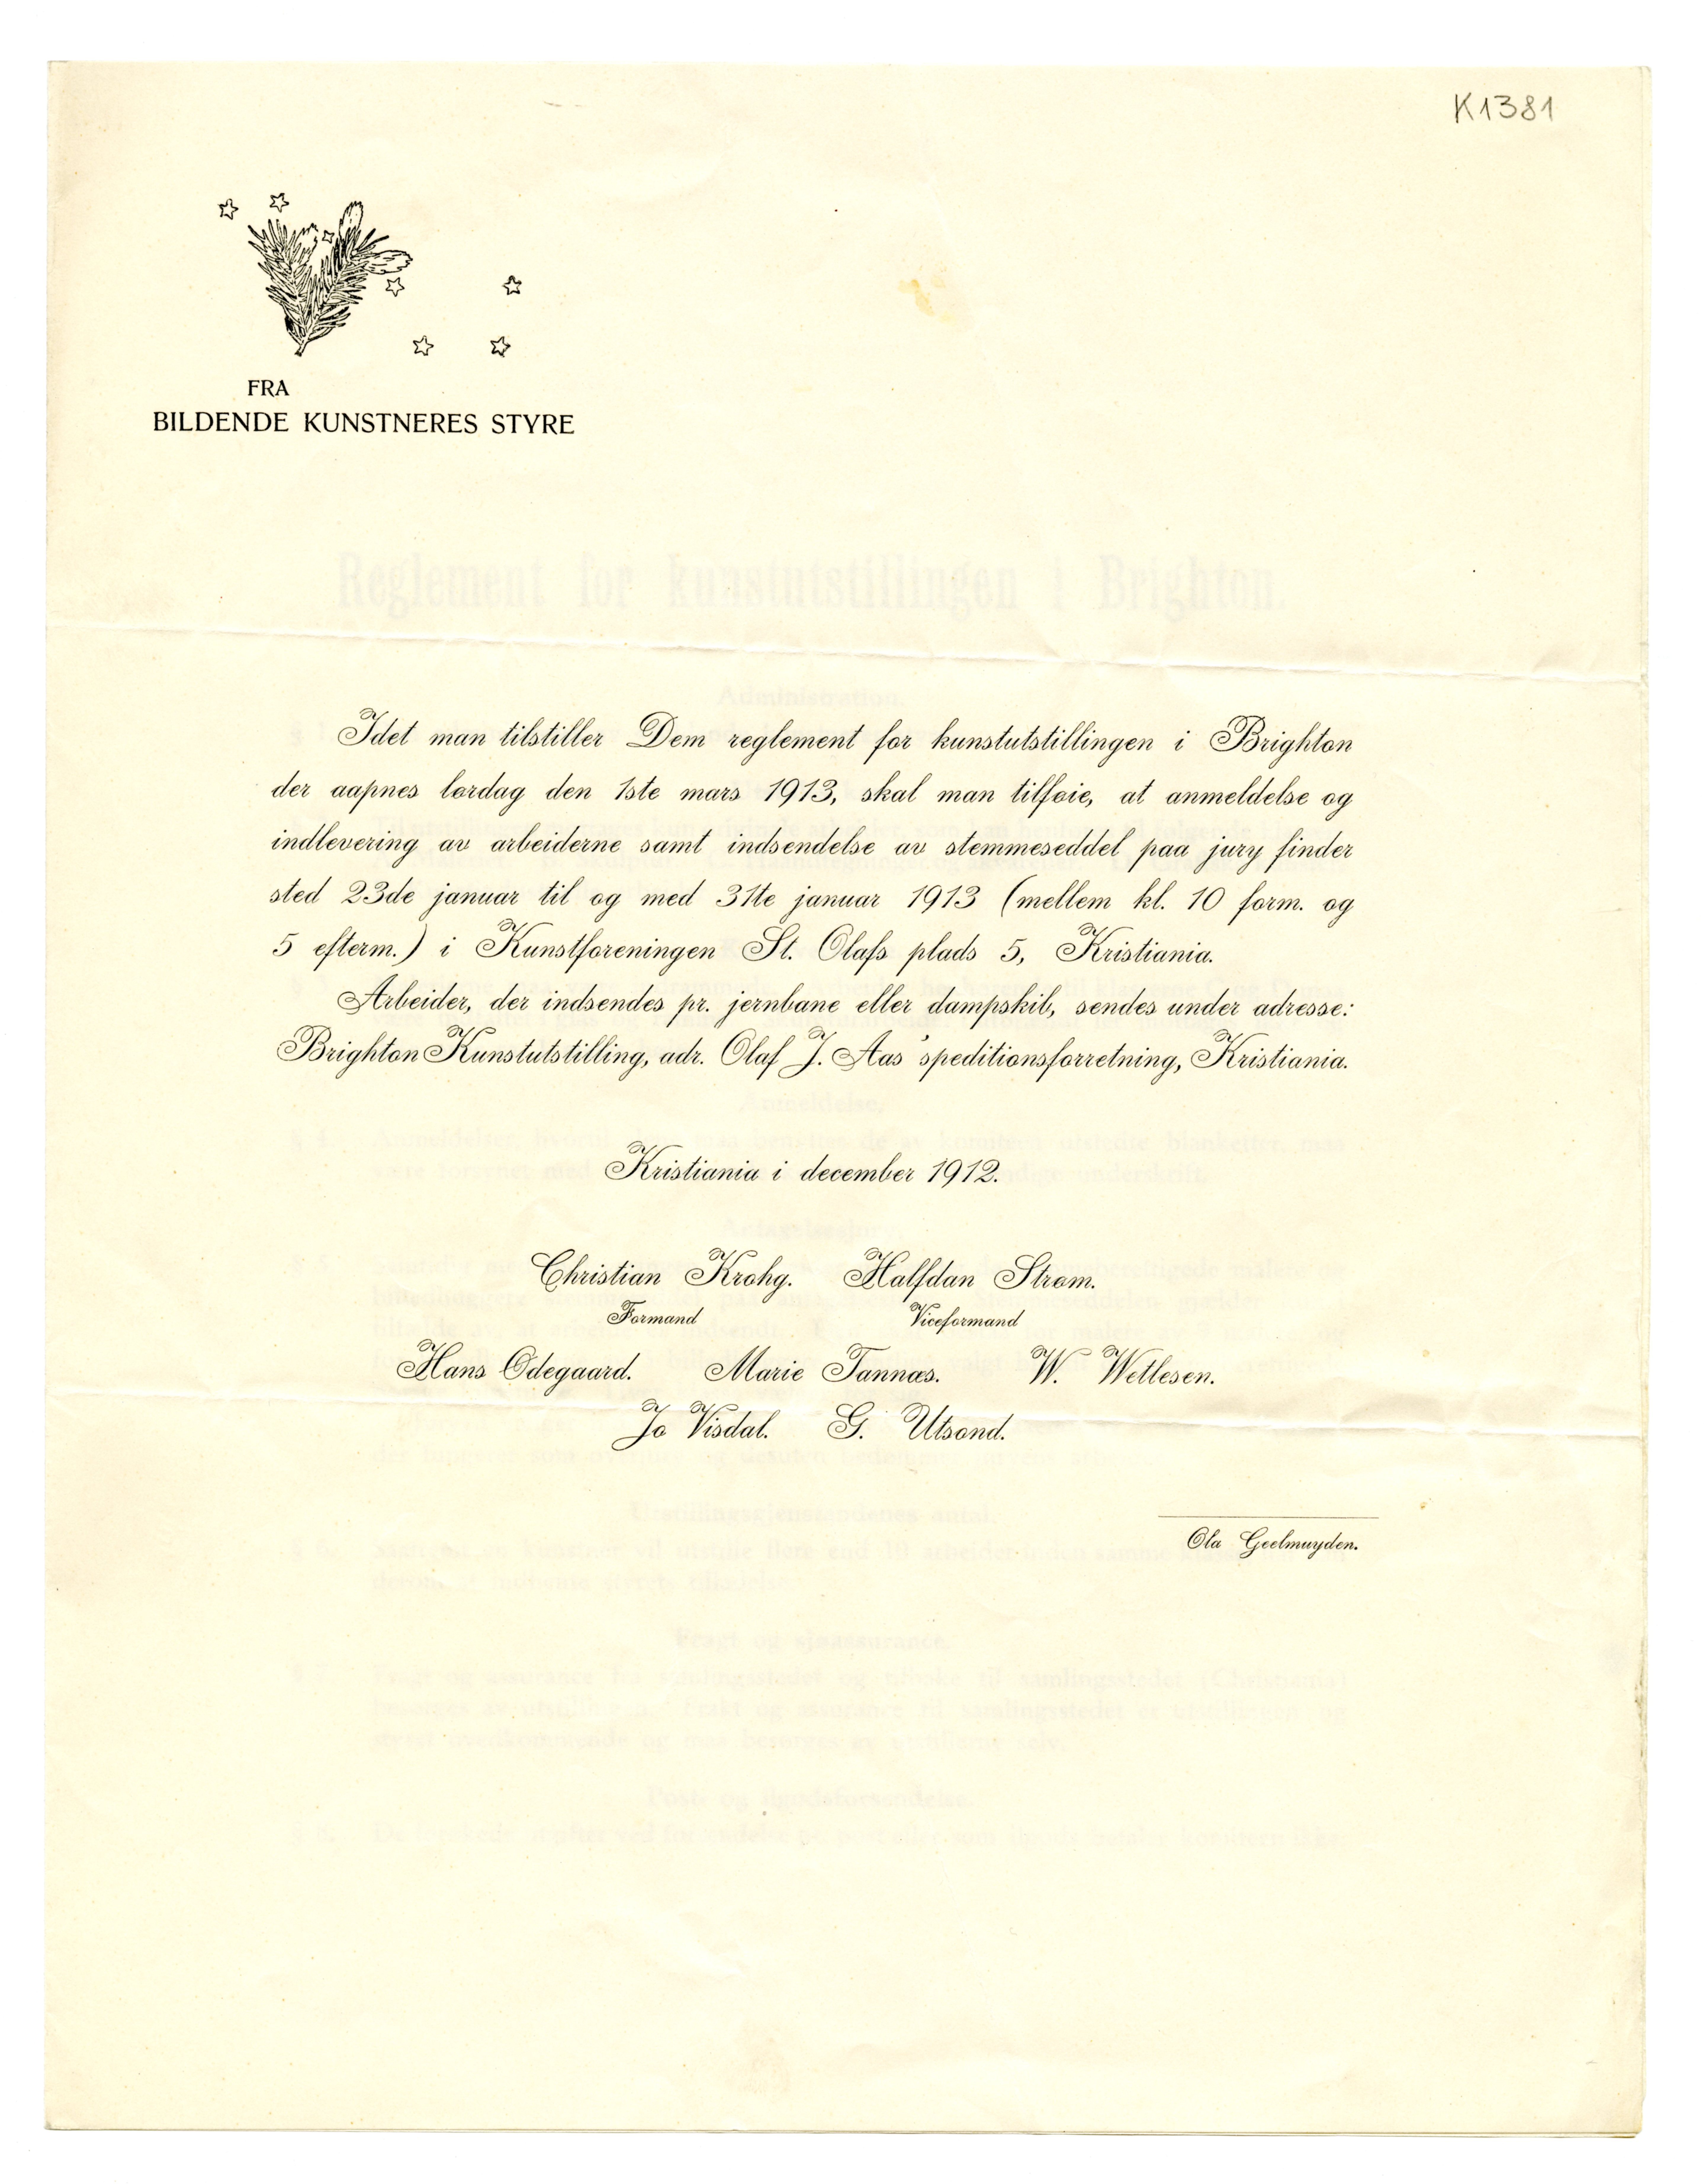 K1381
FRA
BILDENDE KUNSTNERES STYRE
Reglement for kunstutstillingen i Brighton.
Idet man tilstiller Dem reglement for kunstutstillingen i Brighton
der aapnes lørdag den 1ste mars 1913, skal man tilføie, at anmeldelse og
indlevering av arbeiderne samt indsendelse av stemmeseddel paa jury finder
sted 23de januar til og med 31te januar 1913 (mellem kl. 10 form. og
5 efterm.) i Kunstforeningen St. Olafs plads 5, Kristiania.
Arbeider, der indsendes pr. jernbane eller dampskib, sendes under adresse:
Brighton Kunstutstilling, adr. Olaf J. Aas' speditionsforretning, Kristiania.
Kristiania i december 1912.
Christian Krohg. Halfdan Strøm.
Formand Viceformand
Hans Ødegaard. Marie Tannæs. W. Wetlesen.
Jo Visdal. G. Utsond.
Ola Geelmuyden.